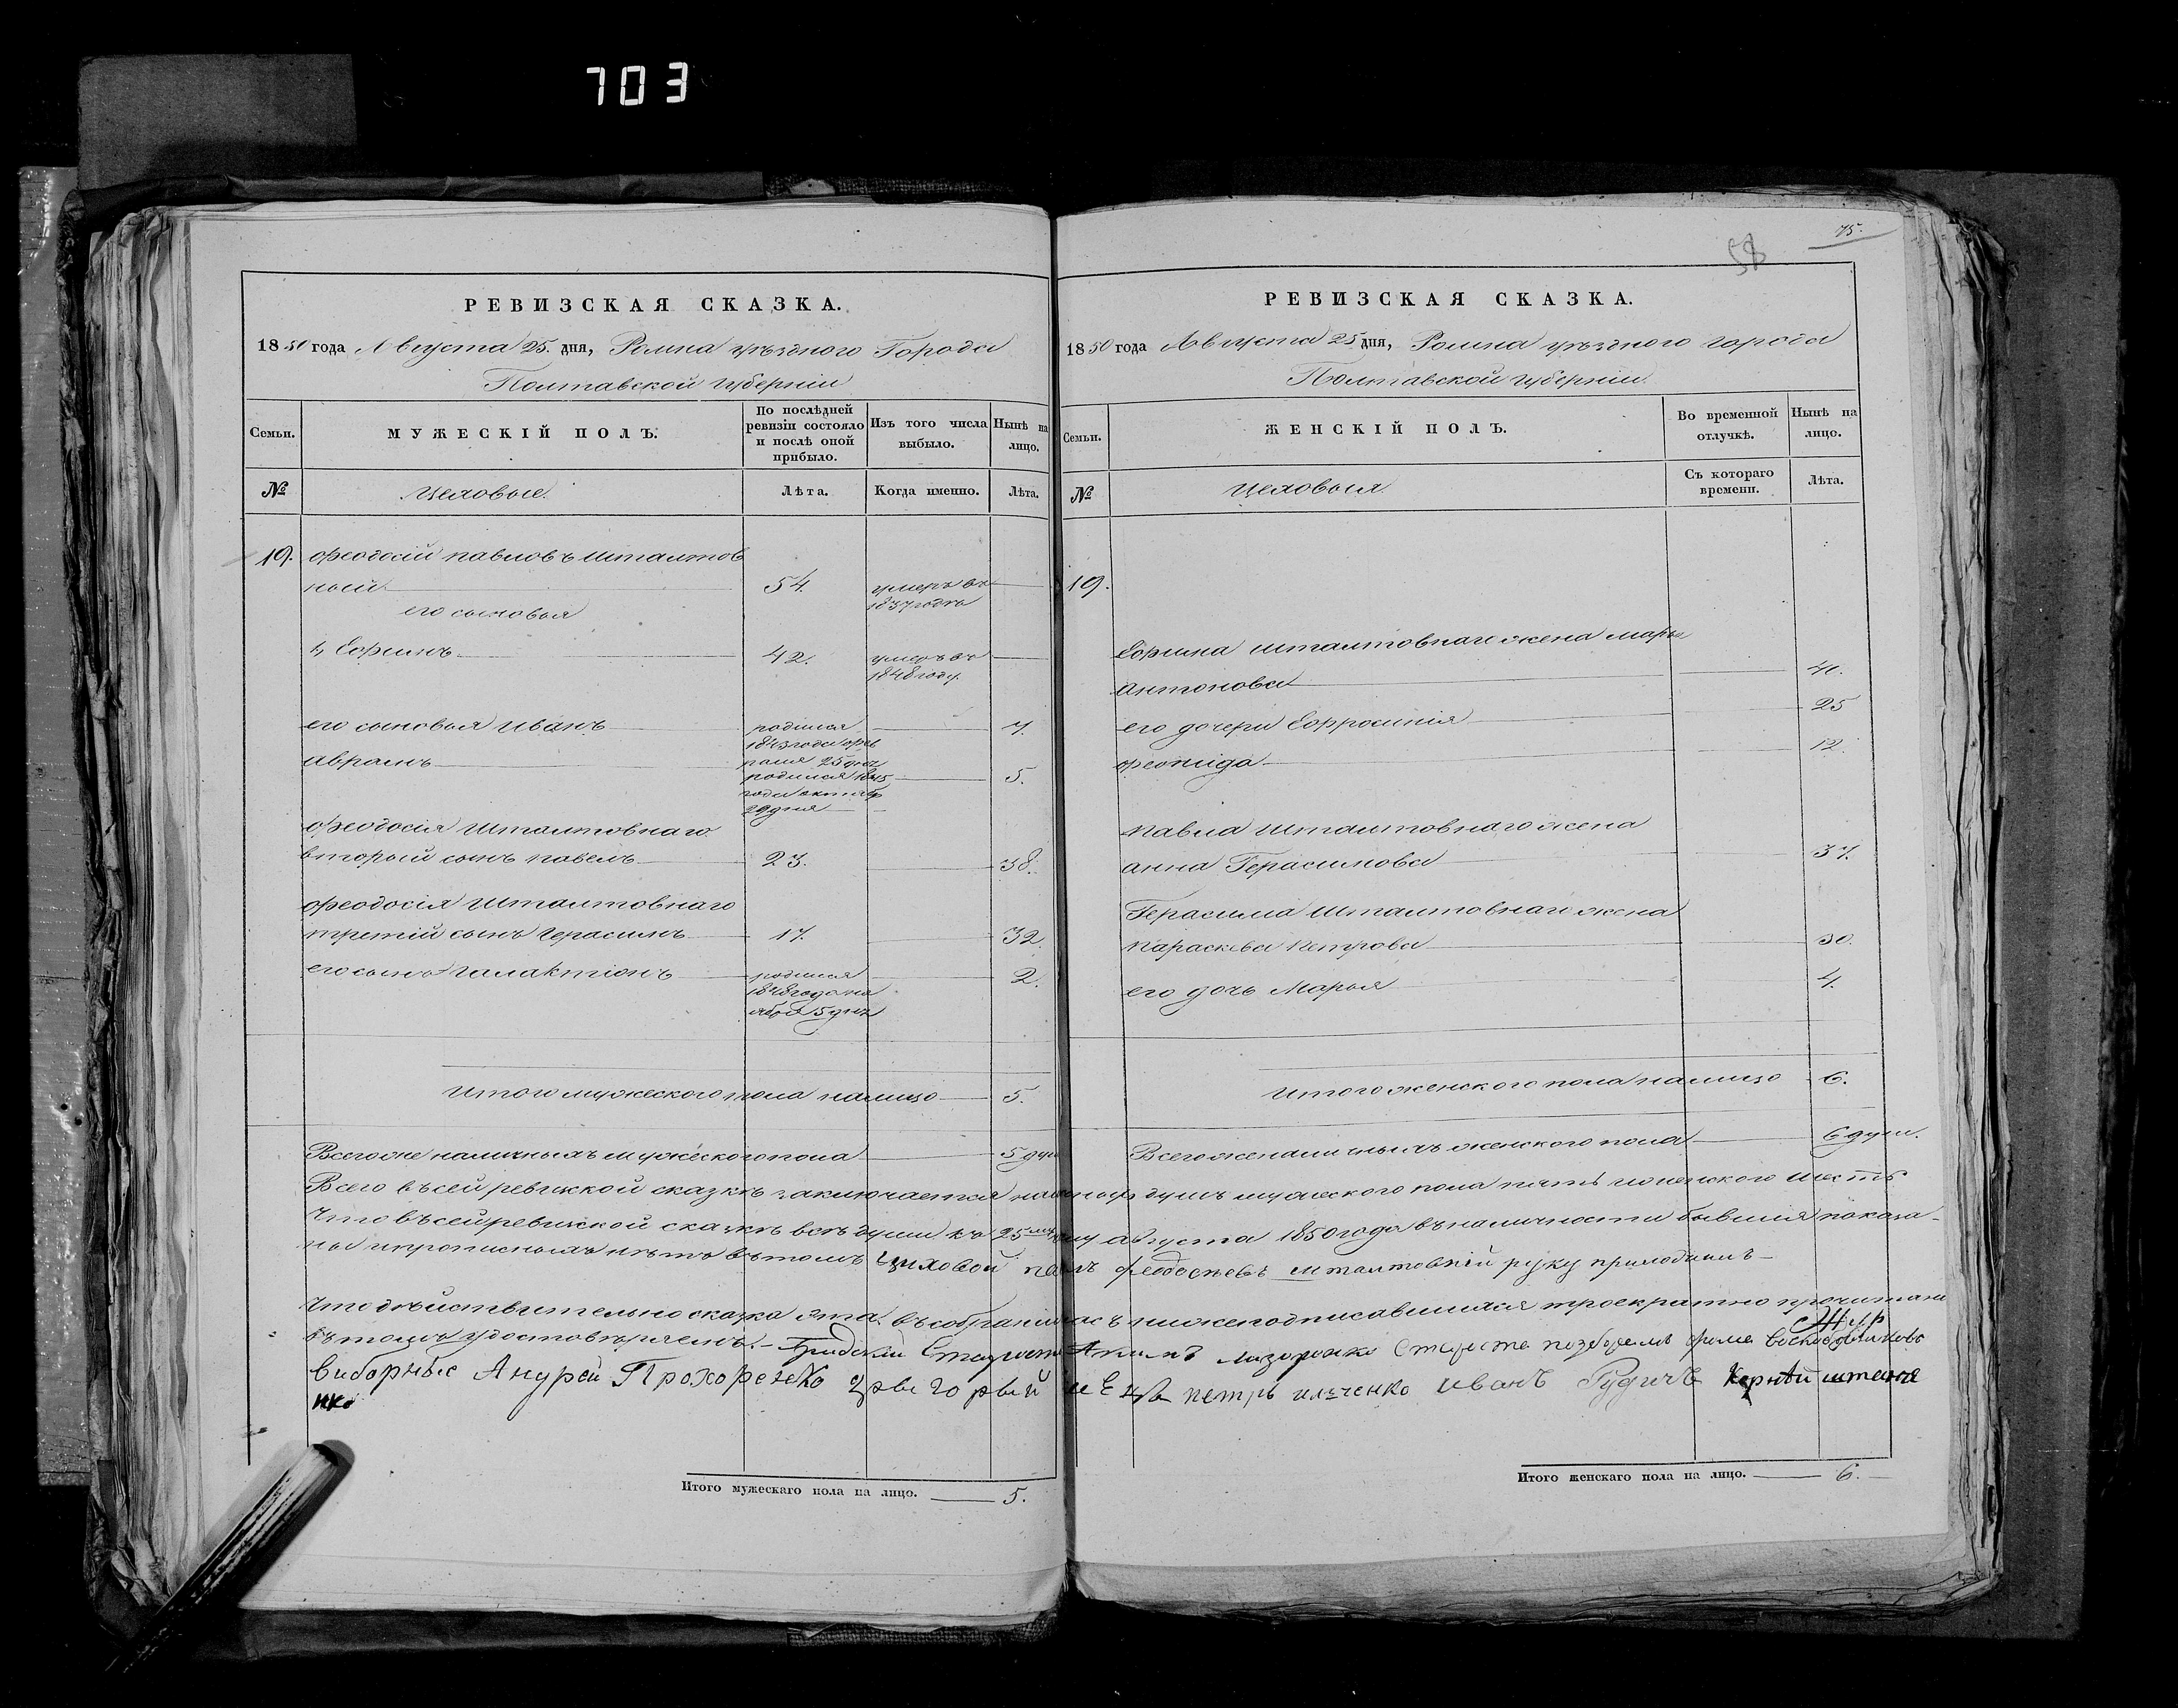 703
РЕВИЗСКАЯ СКАЗКА.
1850 года Августа 25. дня, Ромна уѣзднаго Города
Полтавской губерніи
Семьи.
МУЖЕСКІЙ ПОЛЪ.
По послѣдней ревизіи состояло и послѣ оной прибыло.
Изъ того числа выбыло.
Нынѣ на лицо.
№
Цеховые.
Лѣта.
Когда именно.
Лѣта.
19. Феодосій павловъ Шталтов
ный 54. умеръ въ
1837 годѣ
его сыновья
1, Ефимъ 42. умеръ въ
1848 году.
его сыновья Иванъ родился 7.
1843 года фев
раля 25 дня
Авраамъ родился 1845 5.
года октяб
29 дня
Феодосія Шталтовнаго
вторый сынъ павелъ 23. 38.
Феодосія Шталтовнаго
третій сынъ Герасимъ 17. 32.
его сынъ Галактіонъ родился 2.
1848 года но
ября 5 дня
Итого мужеского пола налицо 5.
Всего же наличныхъ мужеского пола 5 душ
75.
58
РЕВИЗСКАЯ СКАЗКА.
1850 года Августа 25 дня, Ромна уѣздного города
Полтавской губерніи.
Семьи.
ЖЕНСКІЙ ПОЛЪ.
Во временной отлучкѣ.
Нынѣ на лицо.
№
Цеховыя.
Съ котораго времени.
Лѣта.
19.
Ефима Шталтовнаго жена Марья
Антонова 41.
его дочери Ефросинія 25
Феонида 12.
павла Шталтовнаго жена
Анна Герасимова 37.
Герасима Шталтовнаго жена
Параскева Петрова 30.
его дочь Марья 4.
Итого женского пола налицо 6.
Всего же наличныхъ женского пола 6 душ.
Всего въ сей ревизской сказкѣ заключается наличныхъ душъ мужеского пола пять и женского шесть
Что въ сей ревизской сказкѣ всѣ души къ 25му числу августа 1850 года въ наличности бывшія показа-
ны и прописныхъ нѣтъ въ томъ цеховой павелъ феодосиевъ шталтовній руку приложилъ
Что дѣйствительно сказка эта въ собраніи насъ нижеподписавшихся троекратно прочитана
въ томъ удостовѣряемъ. Градскій Староста
виборные Андрей Прохоренко петръ ильченко иванъ Рудичъ Корнѣй
нко
Итого мужескаго пола на лицо. 5.
Итого женскаго пола на лицо. 6.